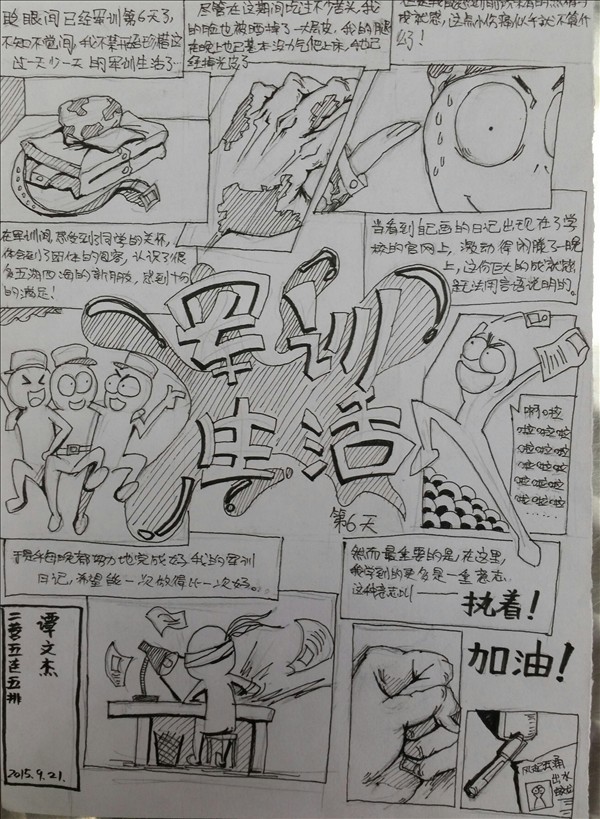 眨眼间已经军训第6天了,
不知不觉间,我不禁开始珍惜这
过一天少一天的军训生活了…
尽管在这期间吃过不少苦头,我
的脸也被晒掉了一大层皮,我的腿
走晚上也已基本没力气爬上床,
成就感,这点小伤痛似乎就不算什
么了!
在军训间,感受到了同学的关怀,
体会到了团体的观念,认识了很
多五湖四海的新朋友,感到十分
的满足!
当看到自己画的日记出现在了学
校的官网上,激动得闹腾了一晚
上,这份巨大的成就感
是无法用言语说明的。
军训
生活
第6天
啊啦
啦啦啦
啦啦啦
啦啦啦
啦啦啦
啦啦啦……
于是每晚都努力地完成好我的军训
日记,希望能一次做得比一次好。。
然而最重要的是,在这里,
我学到的更多是一重意志
这种意志叫——
执着!
加油!
谭文杰
二营五连五排
2015.9.21.